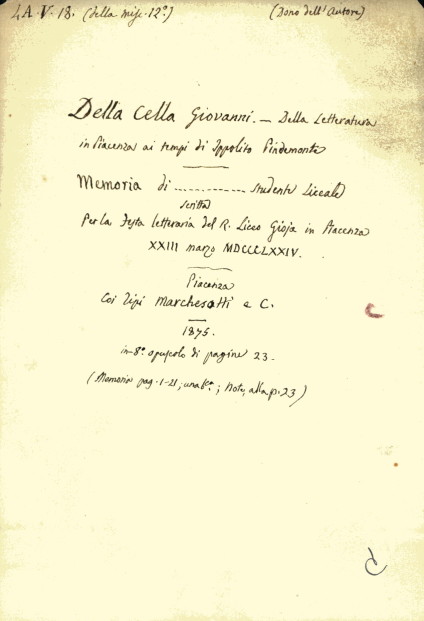 4A.V.18. (della misc. 12ª.) (Dono dell'Autore)
Della Cella Giovanni. — Della Letteratura
in Piacenza ai tempi di Ippolito Pindemonte
Memoria di ............. studente liceale
scritta
Per la Festa letteraria del R. Liceo Gioja in Piacenza
XXIII marzo MDCCCLXXIV.
Piacenza
Coi Tipi Marchesotti e C.
1875.
in-8º opuscolo di pagine 23.
(Memoria pag. 1-21; ; Note, alla p. 23)